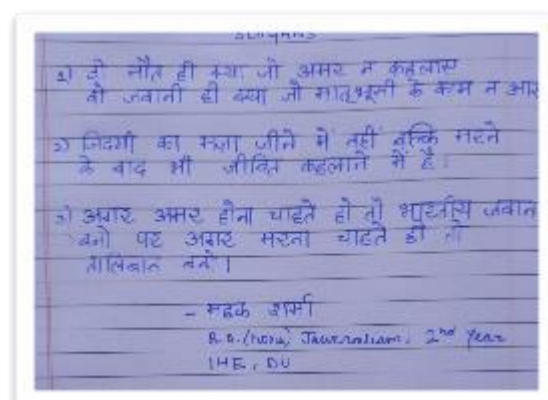 SLOGANS
1) वो मौत ही क्या जो अमर न कहलाए
वो जवानी ही क्या जो मातृभूमी के काम न आए
2) जिंदगी का मज़ा जीने में नहीं बल्कि मरने
के बाद भी जीवित कहलाने में है।
3) अगर अमर होना चाहते हो तो भारतीय जवान
बनो पर अगर मरना चाहते हो तो
तालिबान बनो।
- महक शर्मा
B.A.(Hons) Journalism, 2nd Year
IHE, DU